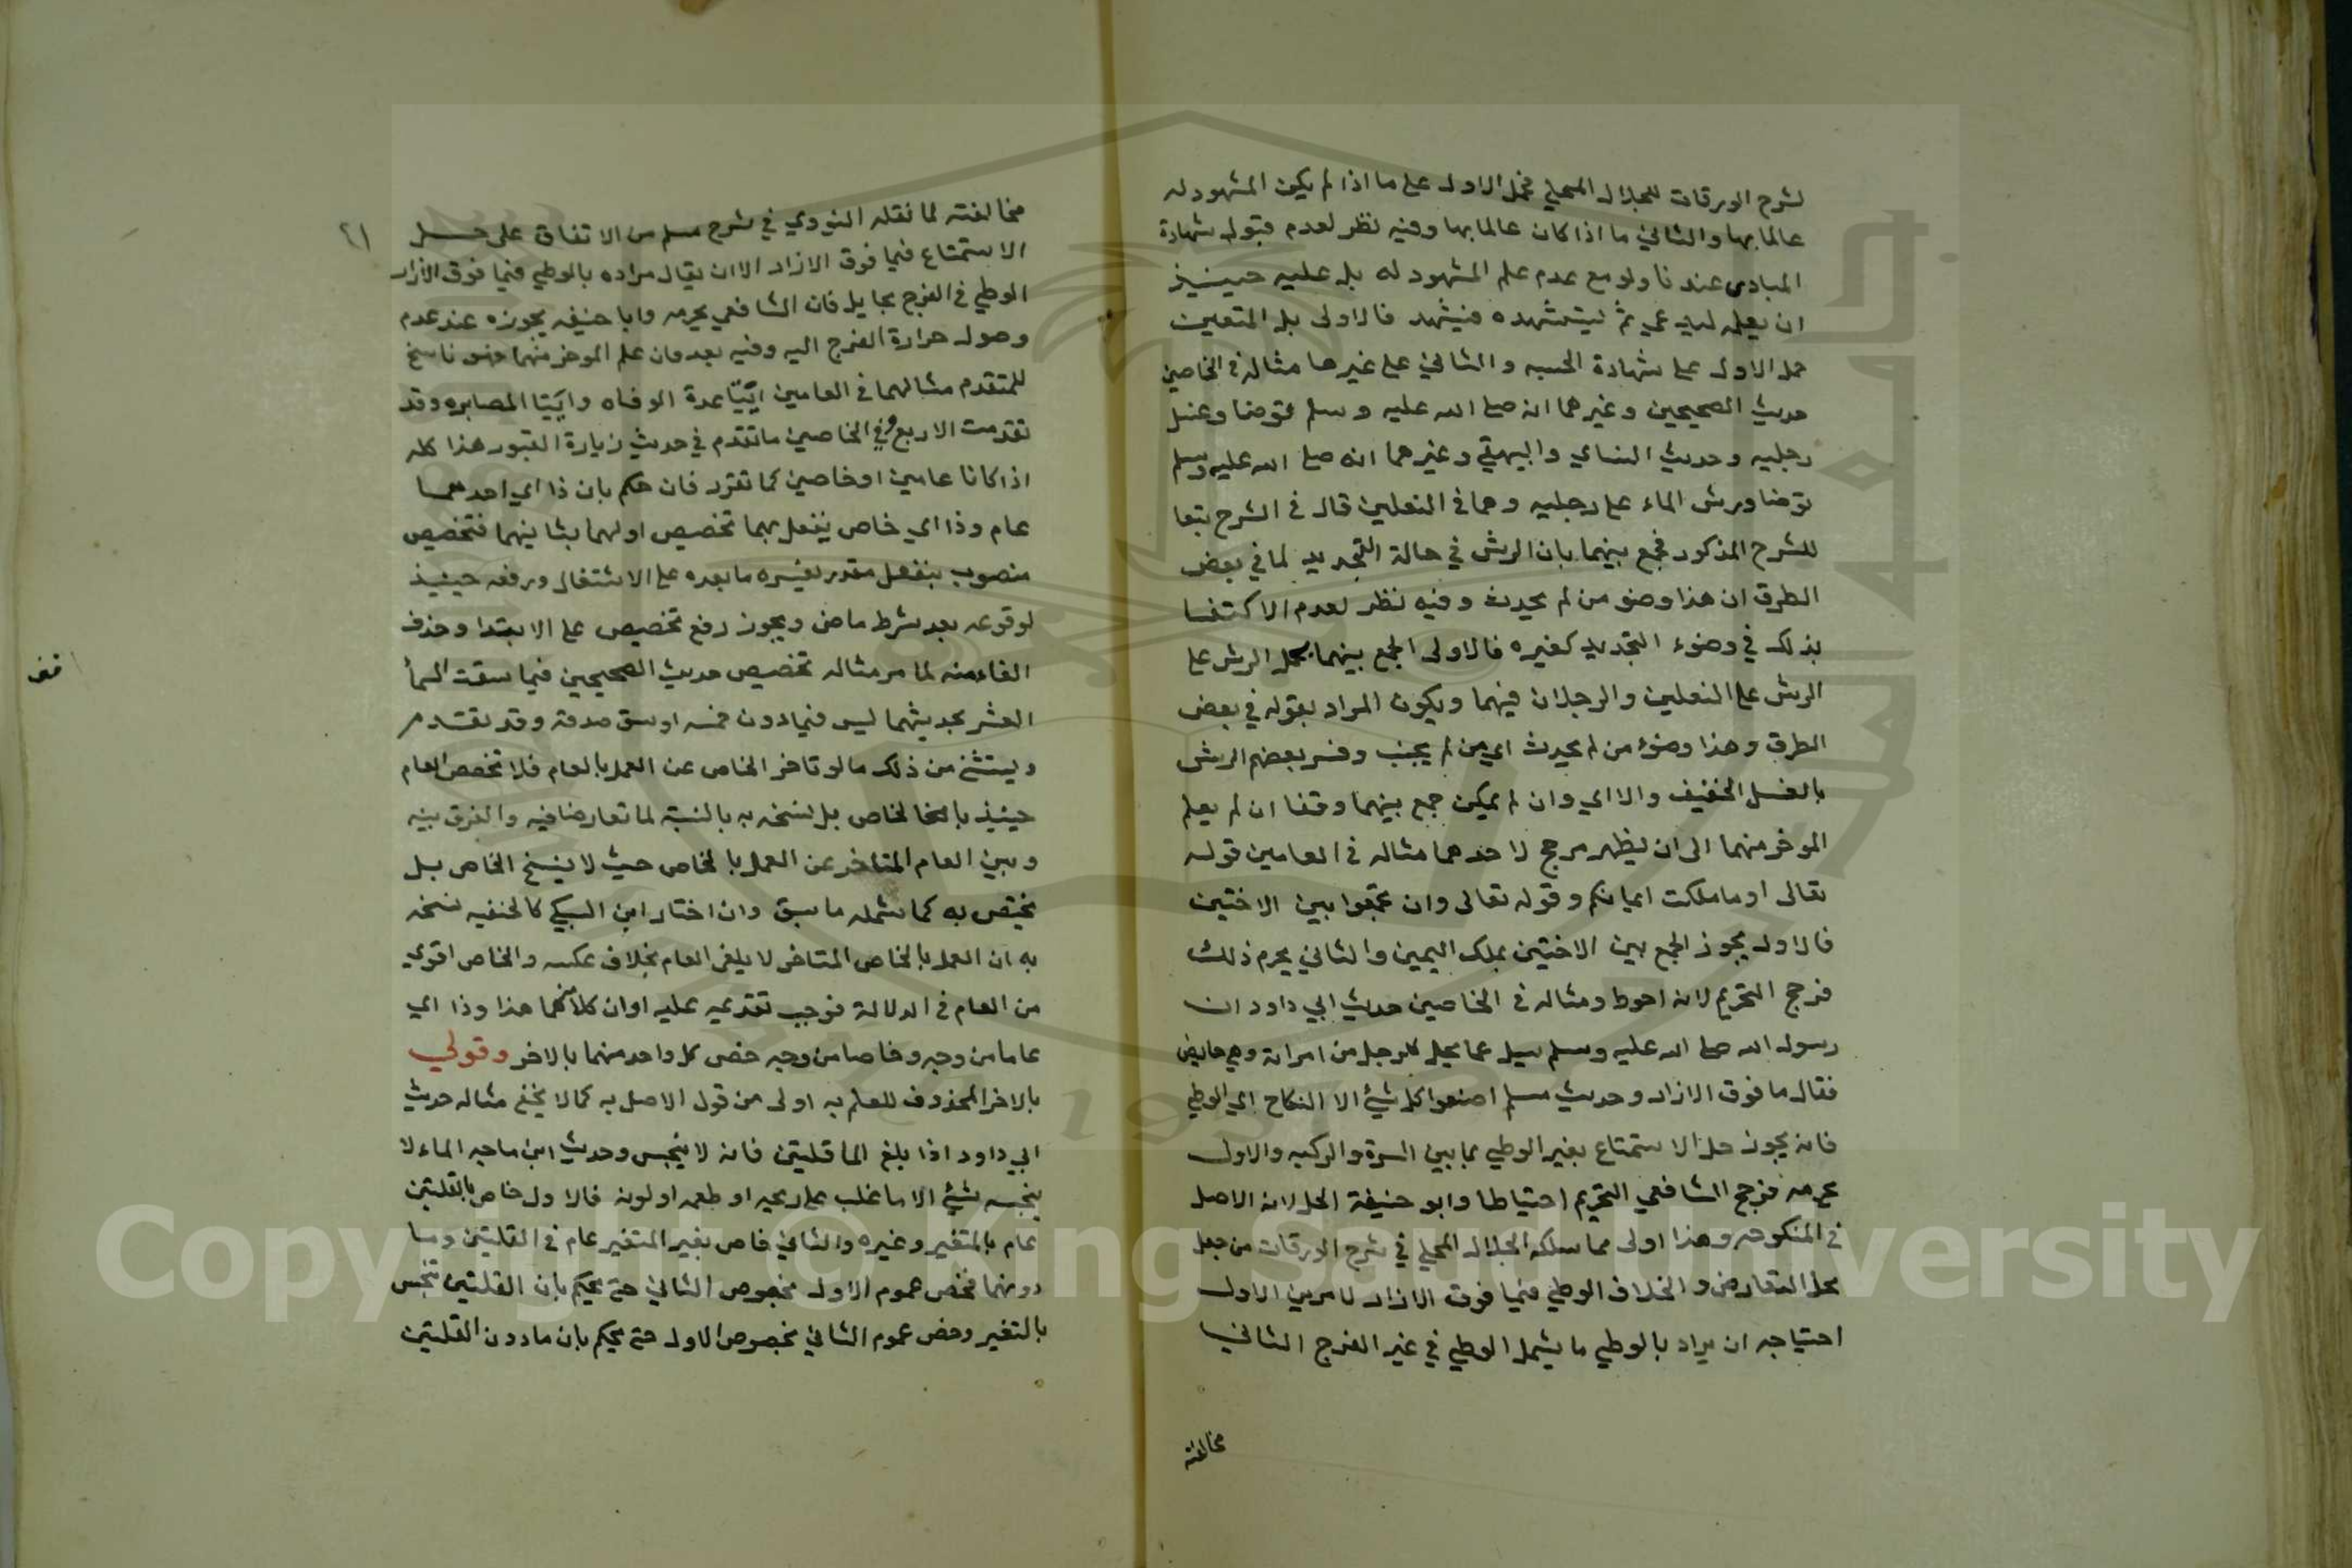 لشرح الورقات للجلال المحلي فحمل الاول على ما اذا لم يكن المشهود له
عالما بها والثاني ما اذا كان عالما بها وفيه نظر لعدم قبول شهادة
المبادي عندنا ولو مع عدم علم المشهود له بل عليه حينيذ
ان يعلمه ليدعي ثم ليستشهده فيشهد فالاولى بل المتعين
حمل الاول على شهادة الحسبه والثاني على غيرها مثاله في الخاصين
حديث الصحيحين وغيرهما انه صلى الله عليه وسلم توضا وغسل
رجليه وحديث النساي والبيهقي وغيرهما انه صلى الله عليه وسلم
توضا ورش الماء على رجليه وهما في النعلين قال في الشرح تبعا
للشرح المذكور فجمع بينهما بان الرش في حالة التجديد لما في بعض
الطرق ان هذا وضو من لم يحدث وفيه نظر لعدم الاكتفا
بذلك في وضوء التجديد كغيره فالاولى الجمع بينهما بحمل الرش على
الرش على النعلين والرجلان فيهما ويكون المراد بقوله في بعض
الطرق وهذا وضوء من لم يحدث اي من لم يجنب وفسر بعضهم الرش
بالغسل الخفيف والا اي وان لم يمكن جمع بينهما وقفا ان لم يعلم
الموخر منهما الى ان يظهر مرجح لاحدهما مثاله في العامين قوله
تعالى او ما ملكت ايمانكم وقوله تعالى وان تجمعوا بين الاختين
فالاول يجوز الجمع بين الاختين بملك اليمين والثاني يحرم ذلك
فرجح التحريم لانه احوط ومثاله في الخاصين حديث ابي داود ان
رسول الله صلى الله عليه وسلم سيل عما يحل للرجل من امراته وهي حايض
فقال ما فوق الازار وحديث مسلم اصنعوا كل شيئ الا النكاح اي الوطي
فانه يجوز حل الاستمتاع بغير الوطي بما بين السرة والركبه والاول
يحرمه فرجح الشافعي التحريم احتياطا وابو حنيفة الحل لانه الاصل
في المنكوحه وهذا اولى مما سلكه الجلال المحلي في شرح الورقات من جعل
محل التعارض والخلاف الوطي فيما فوق الازار لامرين الاول
احتياجه ان يراد بالوطي ما يشمل الوطي في غير الفرج الثاني
مخالفته
٢١
مخالفته لما نقله النووي في شرح مسلم من الاتفاق على حل
الاستمتاع فيما فوق الازار الا ان يقال مراده بالوطي فيما فوق الازار
الوطي في الفرج بحايل فان الشافعي يحرمه وابا حنيفه يجوزه عند عدم
وصول حرارة الفرج اليه وفيه بعد وان علم الموخر منهما فهو ناسخ
للمتقدم مثالهما في العامين ايتا عدة الوفاه وايتا المصابره وقد
تقدمت الاربع وفي الخاصين ما تقدم في حديث زيارة القبور هذا كله
اذا كانا عامين او خاصين كما تقرر فان حكم بان ذا اي احدهما
عام وذا اي خاص ينفعل بهما تخصيص اولهما بثانيهما فتخصيص
منصوب بفعل مقدر يفسره ما بعده على الاشتغال ورفعه حينيذ
لوقوعه بعد شرط ماض ويجوز رفع تخصيص على الابتدا وحذف
الفاء منه لما مر مثاله تخصيص حديث الصحيحين فيما سقت السمأ
العشر بحديثهما ليس فيما دون خمسه اوسق صدقة وقد تقدم
ويستثنى من ذلك ما لو تاخر الخاص عن العمل بالعام فلا تخصص العام
حينيذ بالخاص بل نسخه به بالنسبة لما تعارضا فيه والفرق بينه
وبين العام المتاخر عن العمل بالخاص حيث لا ينسخ الخاص بل
يختص به كما شمله ما سبق وان اختار ابن السبكي كالحنفيه نسخه
به ان العمل بالخاص المتاخر لا يلغي العام بخلاف عكسه والخاص اقوى
من العام في الدلالة فوجب تقديمه عليه او ان كلا منهما هذا وذا اي
عاما من وجه وخاصا من وجه خص كل واحد منهما بالاخر وقولي
بالاخر المحذوف للعلم به اولى من قول الاصل به كما لا يخفى مثاله حديث
ابي داود اذا بلغ الما قلتين فانه لا ينجس وحديث ابن ماجه الماء لا
ينجسه شيئ الا ما غلب على ريحه او طعمه او لونه فالاول خاص بالقلتين
عام بالمتغير وغيره والثاني خاص بغير المتغير عام في القلتين وما
دونهما فخص عموم الاول بخصوص الثاني حتى يحكم بان القلتين تنجس
بالتغير وخص عموم الثاني بخصوص الاول حتى يحكم بان ما دون القلتين
Copyright © King Saud University
1957